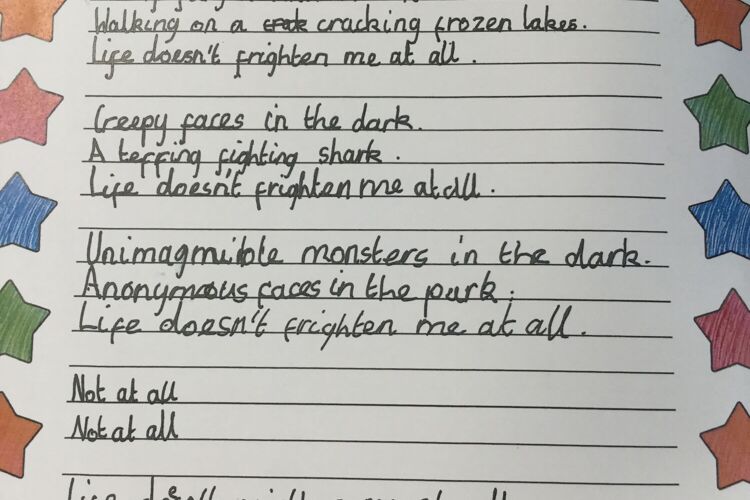 Walking on a cracking frozen lakes.
Life doesn't frighten me at all.
Creepy faces in the dark.
A teffing fighting shark.
Life doesn't frighten me at all.
Unimagmible monsters in the dark.
Anonymous faces in the park.
Life doesn't frighten me at all.
Not at all
Not at all